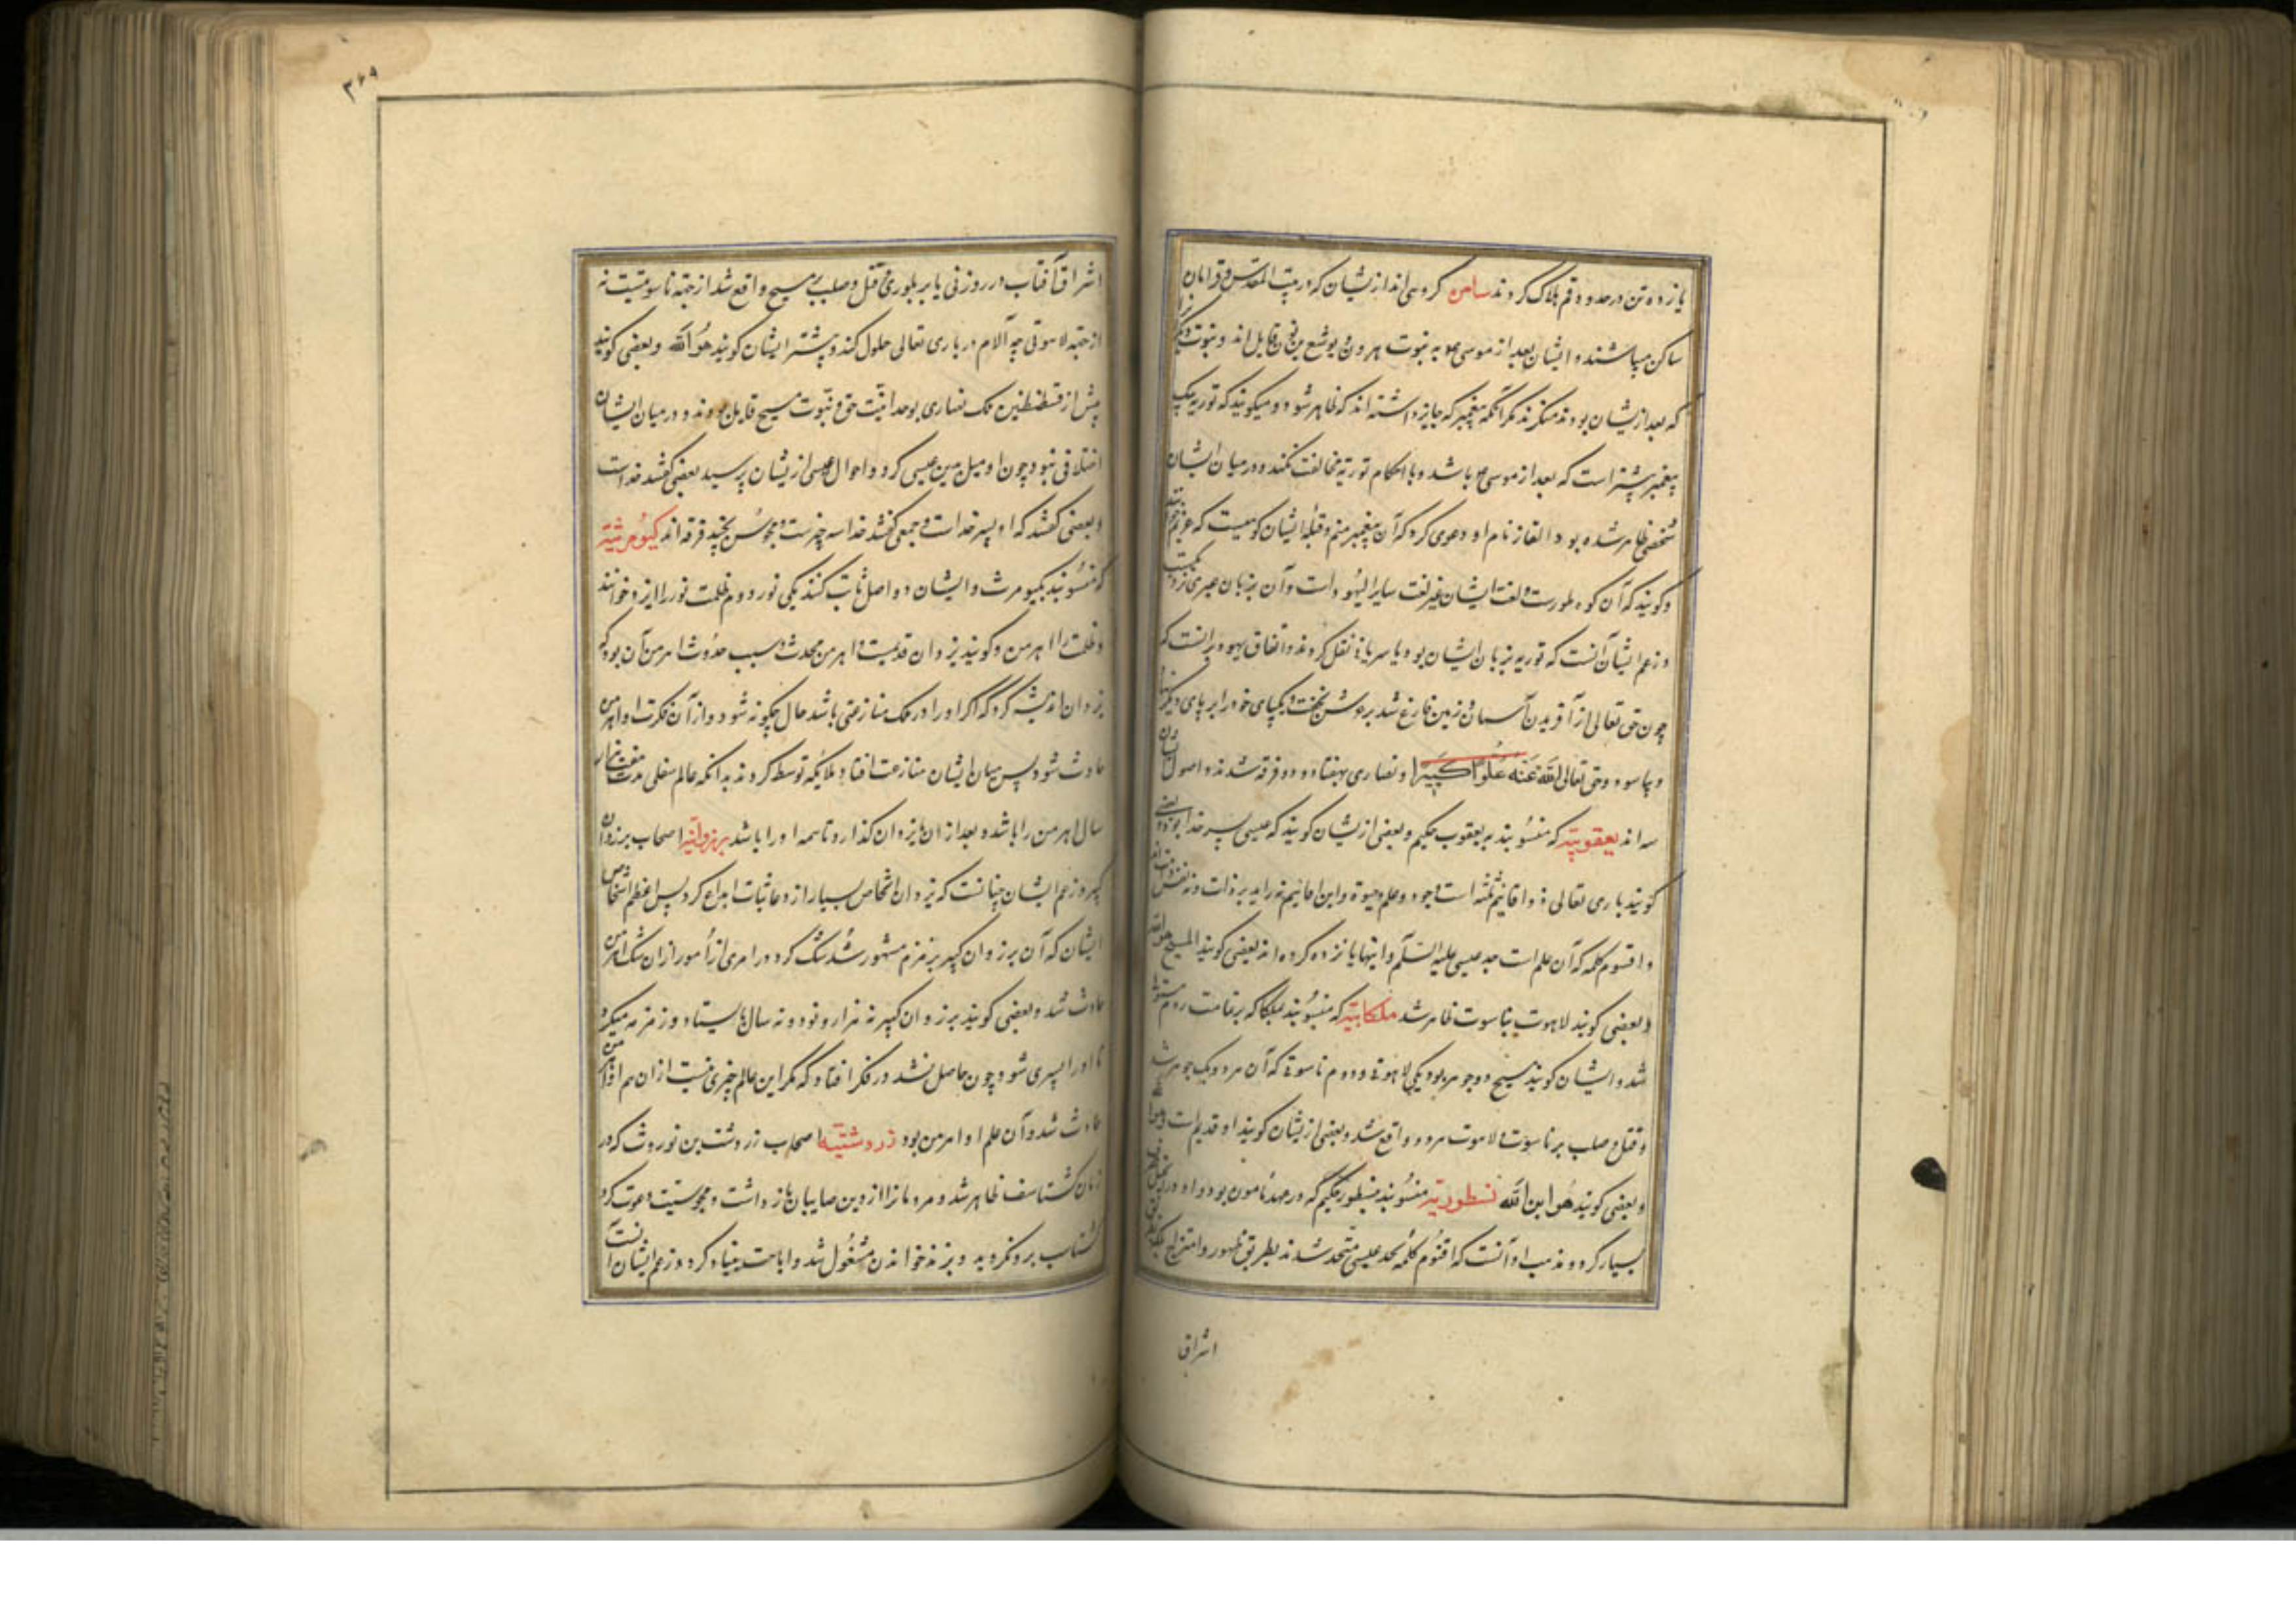 یازده تن در حدود قم هلاک کردند سامره گروهی‌اند ازیشان که در بیت المقدس و قرایان
ساکن میباشند و ایشان بعد از موسی به نبوت هرون و یوشع بن نون قایل‌اند و نبوت
که بعد ازیشان بودند منکرند مگر آنکه پیغمبر که جایز داشته‌اند که ظاهر شود و میکویند که توریه بیک
پیغمبر بیشتر است که بعد از موسی باشد و با احکام توریة مخالفت نکند و در میان ایشان
شخصی ظاهر شده بود القاز نام او دعوی کرد که آن پیغمبر منم و قبلهٔ ایشان کوهیست که
و کویند که آن کوه طورست و لغت ایشان غیر لغت سایر الیهود است و آن بزبان عبری نزدیکست
و زعم ایشان آنست که توریه بزبان ایشان بود با سریانی نقل کردند و اتفاق یهود برانست که
چون حق تعالی از آفریدن آسمان و زمین فارغ شد بر عرش بخفت و یکپای خود را بر پای دیگر
و بیاسود و حق تعالی الله عنه علوا کبیرا و نصاری بهفتاد و دو فرقه شدند و اصول
سه‌اند یعقوبیّه که منسوبند بر یعقوب حکیم و بعضی ازیشان کویند که عیسی پسر خدا بود و بعضی
کویند باری تعالی ذو اقانیم ثلثه است وجود و علم و حیوة و این اقانیم نه زاید بر ذات و نه نفس
و اقنوم کلمه که آن علم است عیسی علیه السلم و اینها پانزده کروه‌اند بعضی کویند المسیح هو الله
و بعضی کویند لاهوت بناسوت ظاهر شد ملکاییّه که منسوبند بملکا که بر قامت روم
شد و ایشان کویند مسیح دو جوهر بود یکی لاهوتی و دوم ناسوتی که آن هر دو یک جوهر شد
و قتل و صلب بر ناسوت و لاهوت هر دو واقع شد و بعضی ازیشان کویند او قدیم است
و بعضی کویند هو ابن الله نسطوریّه منسوبند بنسطور حکیم که در عهد مامون بود و او در انجیل
بسیار کرد و مذهب او آنست که اقنوم کلمه بجسد عیسی متحد شد نه بطریق ظهور و امتزاج بلکه
اشراق
۳۶۹
اشراق آفتاب در روزنی یا بر بلوری و قتل و صلب بر مسیح واقع شد از جهة ناسوتیت نه
از جهة لاهوتی چه آلام در باری تعالی حلول نکند و بیشتر ایشان کویند هو الله و بعضی کویند
پیش از قسطنطین ملک نصاری بوحدانیت حق و نبوت مسیح قایل بودند و در میان ایشان
اختلافی نبود چون او میل بدین عیسی کرد و احوال عیسی ازیشان پرسید بعضی کفتند خداست
و بعضی کفتند که او پسر خداست و جمعی کفتند خدا سه چیزست و مجوس پنج فرقه‌اند کیومرثیّه
که منسوبند بکیومرث و ایشان دو اصل ثابت کنند یکی نور و دوم ظلمت نور را ایزد خوانند
و ظلمت را اهرمن و کویند یزدان قدیمست و اهرمن محدث و سبب حدوث اهرمن آن بود که
یزدان اندیشه کرد که اگر او را در ملک منازعتی باشد حال چکونه شود و از آن فکرت او اهرمن
حادث شود پس میان ایشان منازعت افتاد و ملایکه توسط کردند بدانکه عالم سفلی مدت هفت هزار
سال اهرمن را باشد و بعد از آن با یزدان کذارد تا همه او را باشد بر زوانیّه اصحاب برزوان
کبیر و زعم ایشان چنانست که یزدان اشخاص بسیار از روحانیات ابداع کرد پس اعظم اشخاص
ایشان که آن برزوان کبیر بزمزم مشهور شد شک کرد در امری از امور از آن شک اهرمن
حادث شد و بعضی کویند برزوان کبیر نه هزار و نود و نه سال بایستاد و زمزمه میکرد
تا او را پسری شود چون حاصل نشد در فکر افتاد که مگر این عالم چیزی نیست از آن هم اهرمن
حادث شد و آن علم او اهرمن بود زردوشتیّه اصحاب زردشت بن نوروشت که در
زمان کشتاسف ظاهر شد و مردمانرا از دین صابیان بازداشت و بمجوسیت دعوت کرد
کشتاسب برو بکروید و بزند خواندن مشغول شد و اباحت بنیاد کرد و زعم ایشان آنست